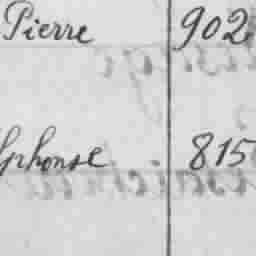 Pierre 902
lphonse 815